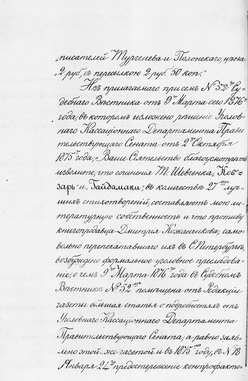 писателей Тургенева и Полонскаго, цѣна
2 руб., съ пересылкою 2 руб. 50 коп.
Изъ прилагаемаго при семъ № 53го Су-
дебнаго Вѣстника отъ 8го Марта сего 1876
года, въ которомъ изложено рѣшеніе Уголов-
наго Кассаціоннаго Департамента Прави-
тельствующаго Сената отъ 2го Октября
1875 года, Ваше Сіятельство благоусмотрите
изволите, что сочиненія Т. Шевченка, Коб-
зарь и Гайдамаки, въ количествѣ 27ми
стихотвореній, составляютъ мою ли-
тературную собственность и что противу
книгопродавца Дмитрія Кожанчикова, само-
вольно перепечатавшаго ихъ въ С. Петербургѣ,
возбуждено формальное уголовное преслѣдова-
ніе; сего 9го Марта 1876 года въ Судебномъ
Вѣстникѣ № 52 помѣщена отъ Редакціи
газеты статья о
Уголовнаго Кассаціоннаго Департамента
Правительствующаго Сената, а равно
той же газетой и въ 1875 году, въ № 18
Января 21го предостереженіе контрафакто-